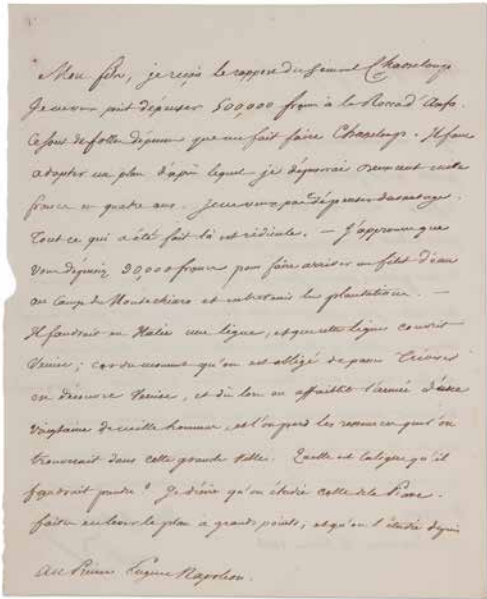 Mon fils, je reçois le rapport du Général Chasseloup
Je ne veux point dépenser 500,000 francs à la Rocca d'Anfo.
Ce sont de folles dépenses que me fait faire Chasseloup. Il faut
adopter un plan d'après lequel je dépenserai cent mille
francs en quatre ans. Je ne veux pas dépenser davantage.
Tout ce qui a été fait là est ridicule. — J'approuve que
vous dépensiez 30,000 francs pour faire arriver un filet d'eau
au Camp de Montechiaro et entretenir les plantations. —
Il faudrait en Italie une ligne, et que cette ligne couvrit
Venise; car du moment qu'on est obligé de passer Trévise
on découvre Venise, et dès lors on affaiblit l'armée d'une
vingtaine de mille hommes, et l'on perd les ressources que l'on
trouverait dans cette grande ville. Quelle est la ligne qu'il
faudrait prendre? Je désire qu'on étudie celle de la Piave.
faites en lever le plan à grands points, et qu'on l'étudie depuis
Au Prince Eugène Napoléon.